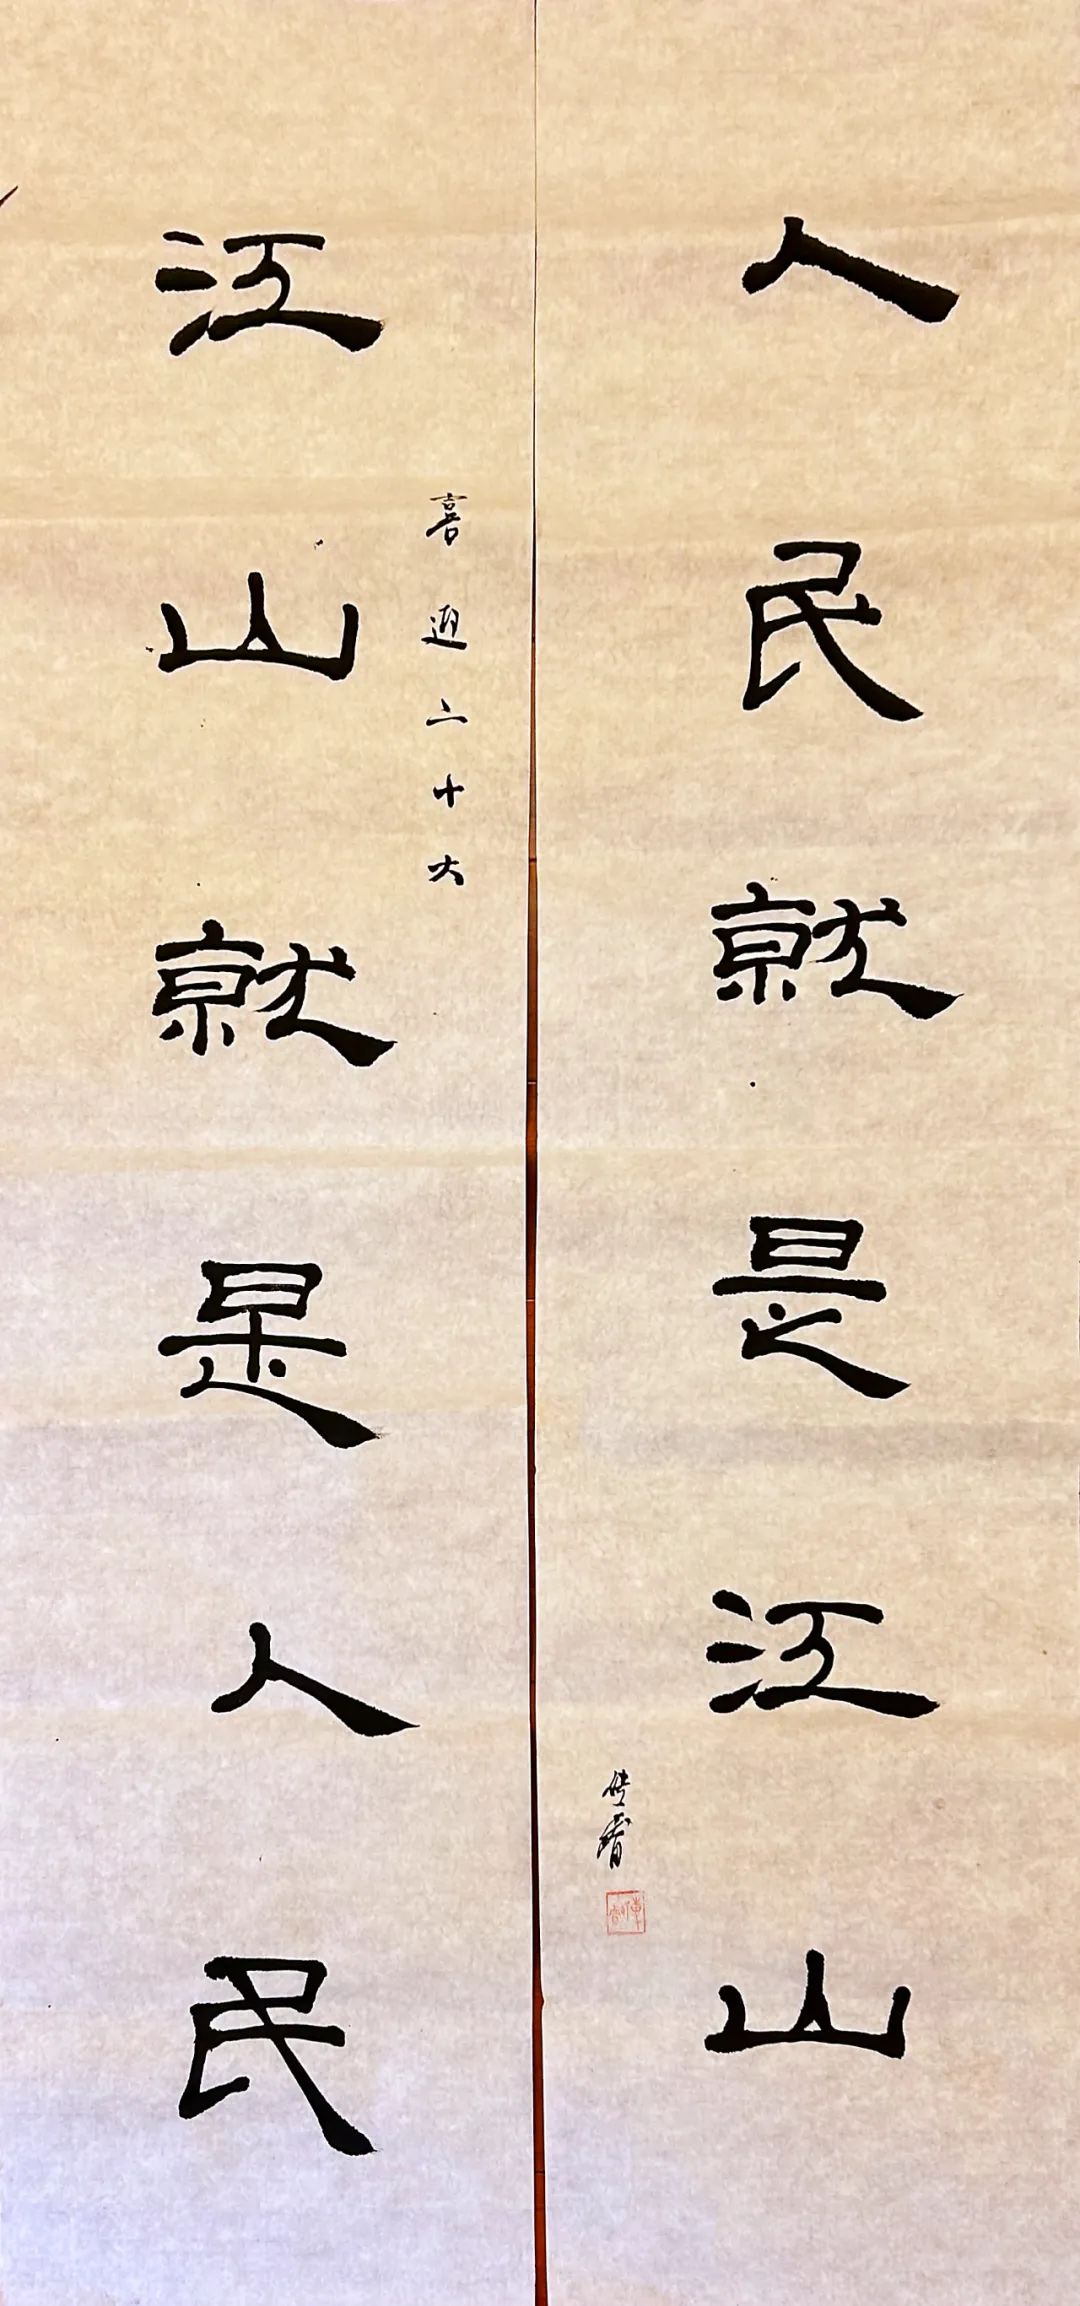 人民就是江山
江山就是人民
喜迎二十大